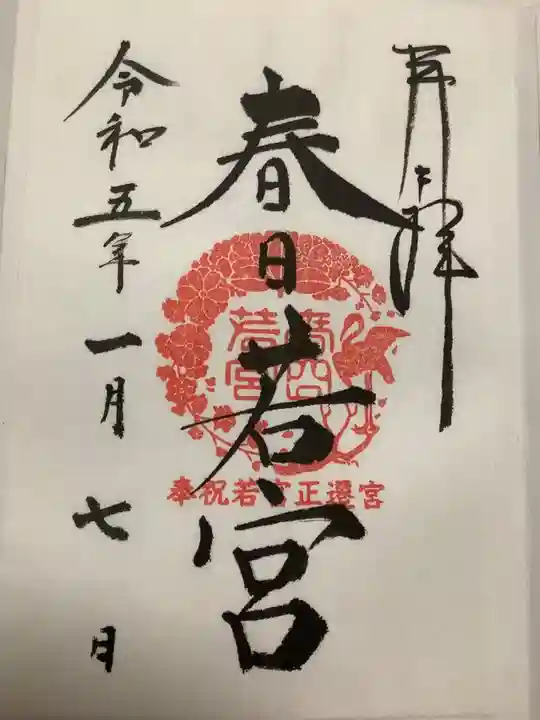 奉拝
春日若宮
春日若宮
奉祝若宮正遷宮
令和五年一月七日